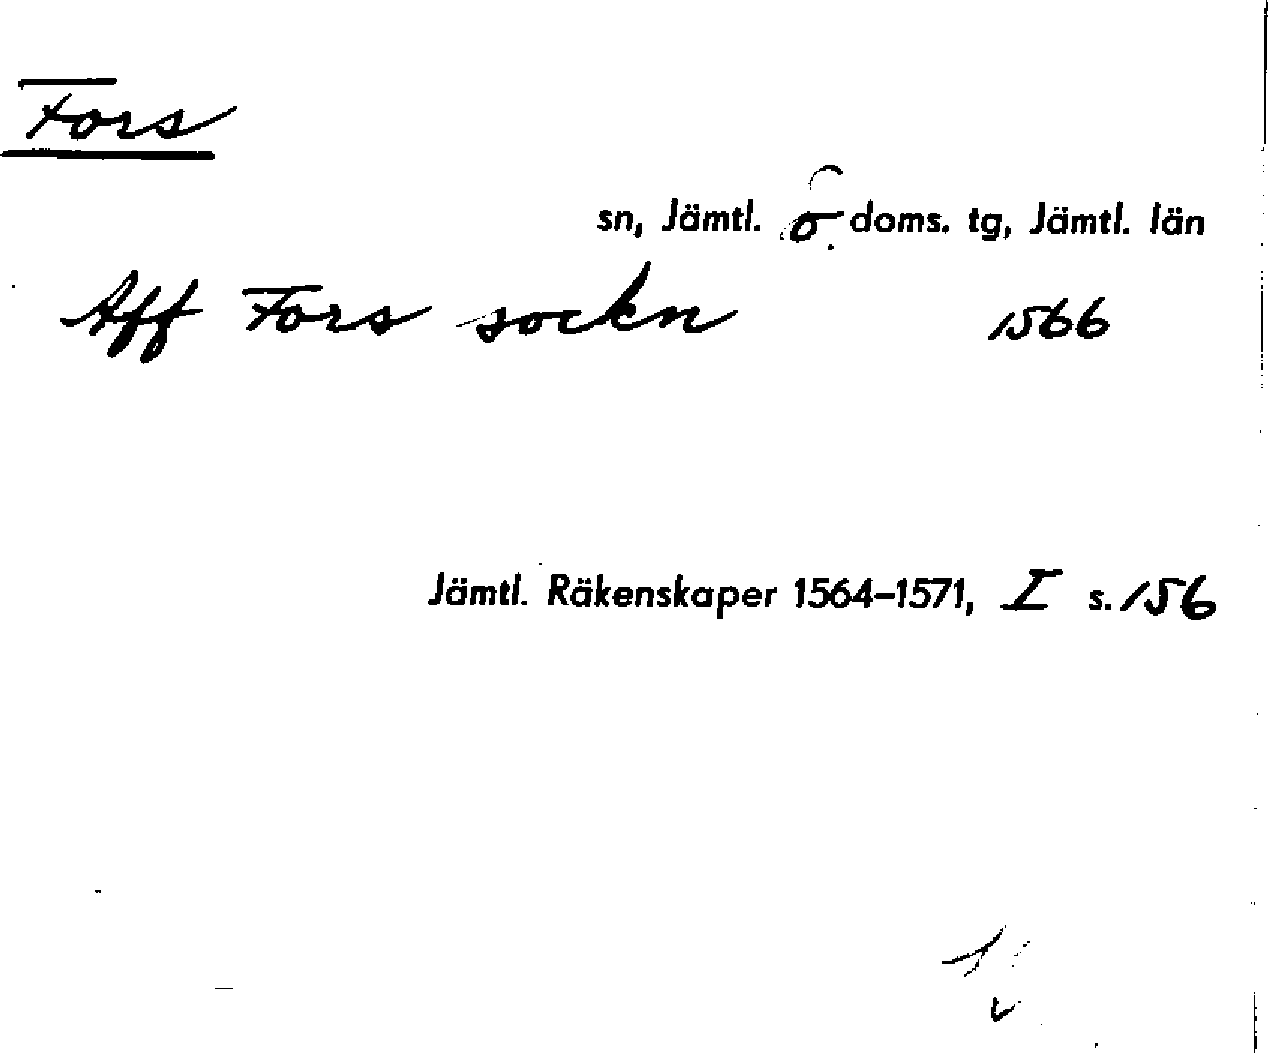 Fors
sn, Jämtl. ö. doms. tg, Jämtl. län
Aff Fors sockn 1566
Jämtl. Räkenskaper 1564–1571, I s. 156